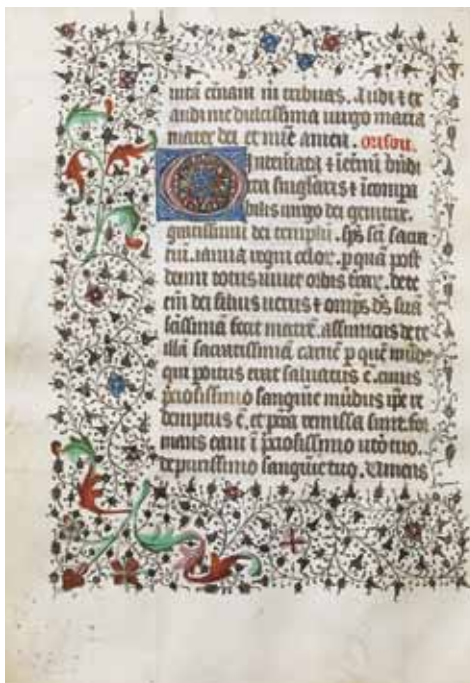 nitā eternam m tribuas. Audi ⁊ ex
audi me dulcissima uirgo maria
mater dei et mie amen. orison.
O Intemerata ⁊ ī etnū bndi
cta singlaris ⁊ īcompa
bilis uirgo dei genitrix.
gratissimū dei templū. sps scī sacra
riū. ianua regni celor. p quā post
deum totus uiuit orbis terrar. de te
em dei filius uerus ⁊ omps ds suā
scissimā fecit matrē. assumens de te
illā sacratissimā carnē p quē mūd
qui pditus erat saluatus ē. cuius
pciosissimo sanguie mūdus ipe re
demptus ē. et pctā remissa sunt. for
mans eam ī pciosissimo utō tuo.
de purissimo sanguie tuo. Uiuens